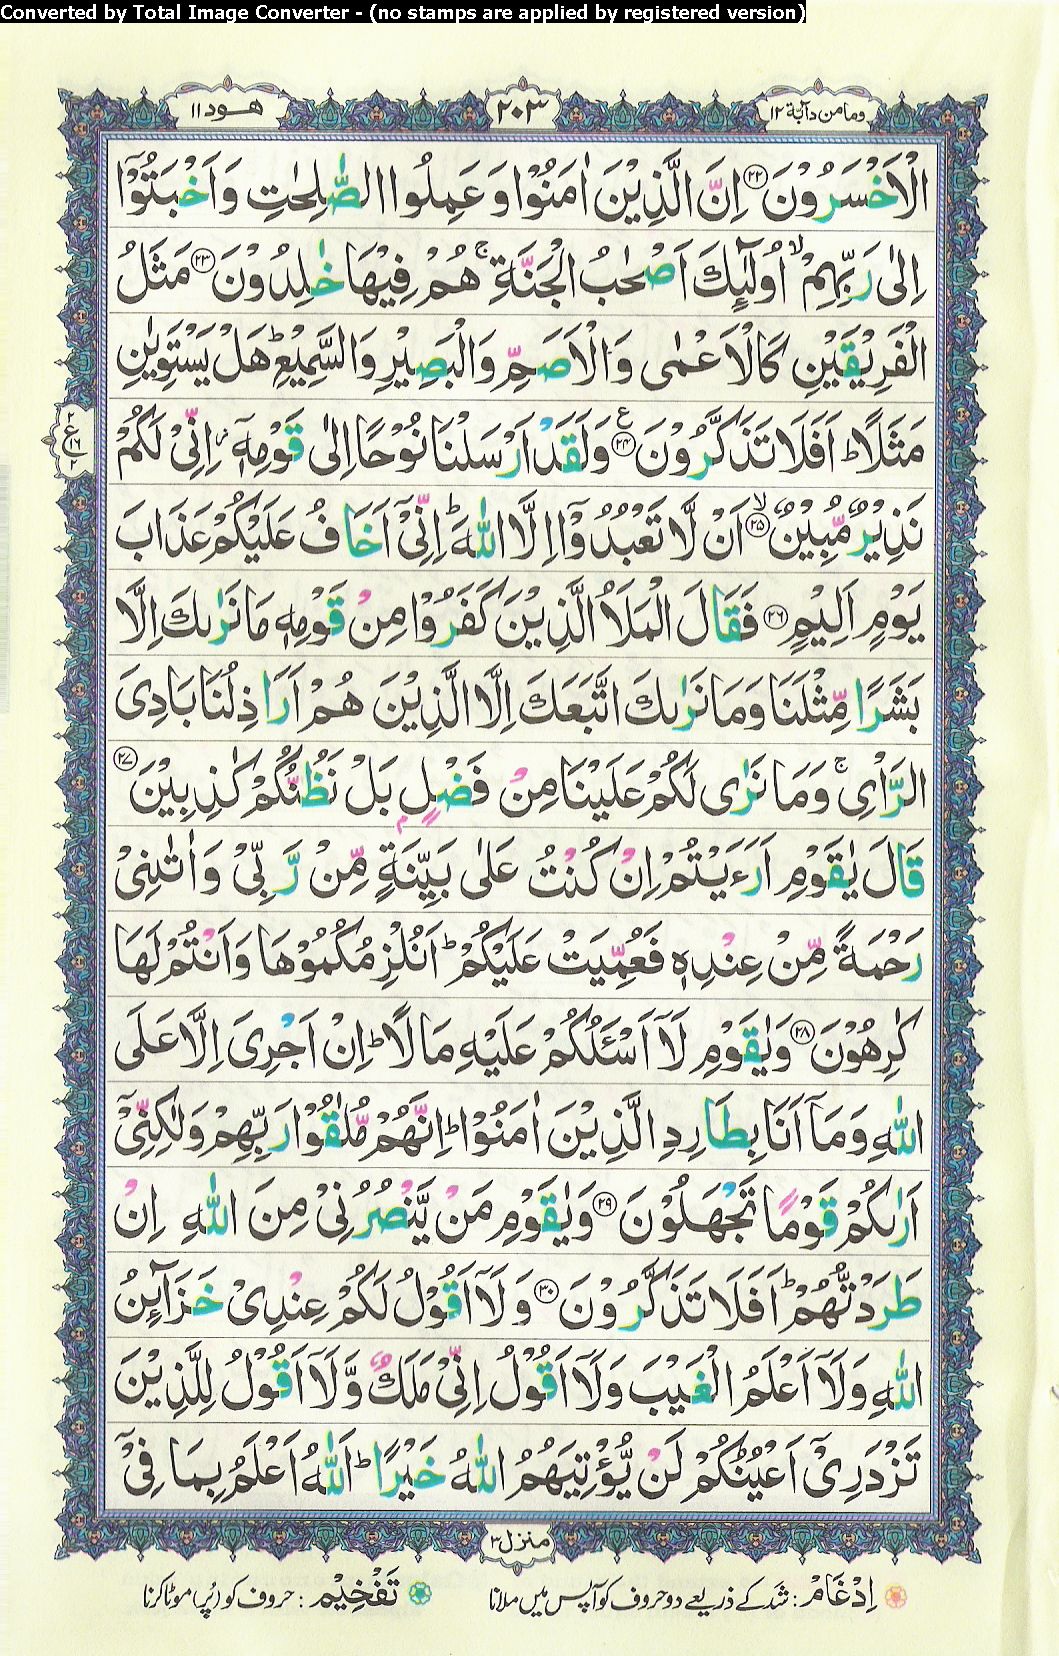 Converted by Total Image Converter - (no stamps are applied by registered version)
وما من دآبّة ١٢
٢٠٣
هود ١١
الْاَخْسَرُوْنَ ﴿۲۲﴾ اِنَّ الَّذِيْنَ اٰمَنُوْا وَ عَمِلُوا الصّٰلِحٰتِ وَاَخْبَتُوْٓا
اِلٰى رَبِّهِمْ ۙ اُولٰٓئِكَ اَصْحٰبُ الْجَنَّةِ ۚ هُمْ فِيْهَا خٰلِدُوْنَ ﴿۲۳﴾ مَثَلُ
الْفَرِيْقَيْنِ كَالْاَعْمٰى وَالْاَصَمِّ وَالْبَصِيْرِ وَالسَّمِيْعِ ؕ هَلْ يَسْتَوِيٰنِ
مَثَلًا ؕ اَفَلَا تَذَكَّرُوْنَ ﴿۲۴﴾ ع وَلَقَدْ اَرْسَلْنَا نُوْحًا اِلٰى قَوْمِهٖٓ ۫ اِنِّىْ لَكُمْ
٢ ع ١٦ ٢
نَذِيْرٌ مُّبِيْنٌ ﴿۲۵﴾ ۙ اَنْ لَّا تَعْبُدُوْٓا اِلَّا اللّٰهَ ؕ اِنِّىْٓ اَخَافُ عَلَيْكُمْ عَذَابَ
يَوْمٍ اَلِيْمٍ ﴿۲۶﴾ فَقَالَ الْمَلَاُ الَّذِيْنَ كَفَرُوْا مِنْ قَوْمِهٖ مَا نَرٰىكَ اِلَّا
بَشَرًا مِّثْلَنَا وَمَا نَرٰىكَ اتَّبَعَكَ اِلَّا الَّذِيْنَ هُمْ اَرَاذِلُنَا بَادِىَ
الرَّاْىِ ۚ وَمَا نَرٰى لَكُمْ عَلَيْنَا مِنْ فَضْلٍۭ بَلْ نَظُنُّكُمْ كٰذِبِيْنَ ﴿۲۷﴾
قَالَ يٰقَوْمِ اَرَءَيْتُمْ اِنْ كُنْتُ عَلٰى بَيِّنَةٍ مِّنْ رَّبِّىْ وَاٰتٰىنِىْ
رَحْمَةً مِّنْ عِنْدِهٖ فَعُمِّيَتْ عَلَيْكُمْ ؕ اَنُلْزِمُكُمُوْهَا وَاَنْتُمْ لَهَا
كٰرِهُوْنَ ﴿۲۸﴾ وَيٰقَوْمِ لَاۤ اَسْـَٔلُكُمْ عَلَيْهِ مَالًا ؕ اِنْ اَجْرِىَ اِلَّا عَلَى
اللّٰهِ وَمَاۤ اَنَا بِطَارِدِ الَّذِيْنَ اٰمَنُوْا ؕ اِنَّهُمْ مُّلٰقُوْا رَبِّهِمْ وَلٰكِنِّىْٓ
اَرٰىكُمْ قَوْمًا تَجْهَلُوْنَ ﴿۲۹﴾ وَيٰقَوْمِ مَنْ يَّنْصُرُنِىْ مِنَ اللّٰهِ اِنْ
طَرَدْتُّهُمْ ؕ اَفَلَا تَذَكَّرُوْنَ ﴿۳۰﴾ وَلَاۤ اَقُوْلُ لَكُمْ عِنْدِىْ خَزَآئِنُ
اللّٰهِ وَلَاۤ اَعْلَمُ الْغَيْبَ وَلَاۤ اَقُوْلُ اِنِّىْ مَلَكٌ وَّلَاۤ اَقُوْلُ لِلَّذِيْنَ
تَزْدَرِىْٓ اَعْيُنُكُمْ لَنْ يُّؤْتِيَهُمُ اللّٰهُ خَيْرًا ؕ اَللّٰهُ اَعْلَمُ بِمَا فِىْٓ
منزل ٣
اِدْغَامْ : شد کے ذریعے دو حروف کو آپس میں ملانا تَفْخِيْم : حروف کو (پُر) موٹا کرنا